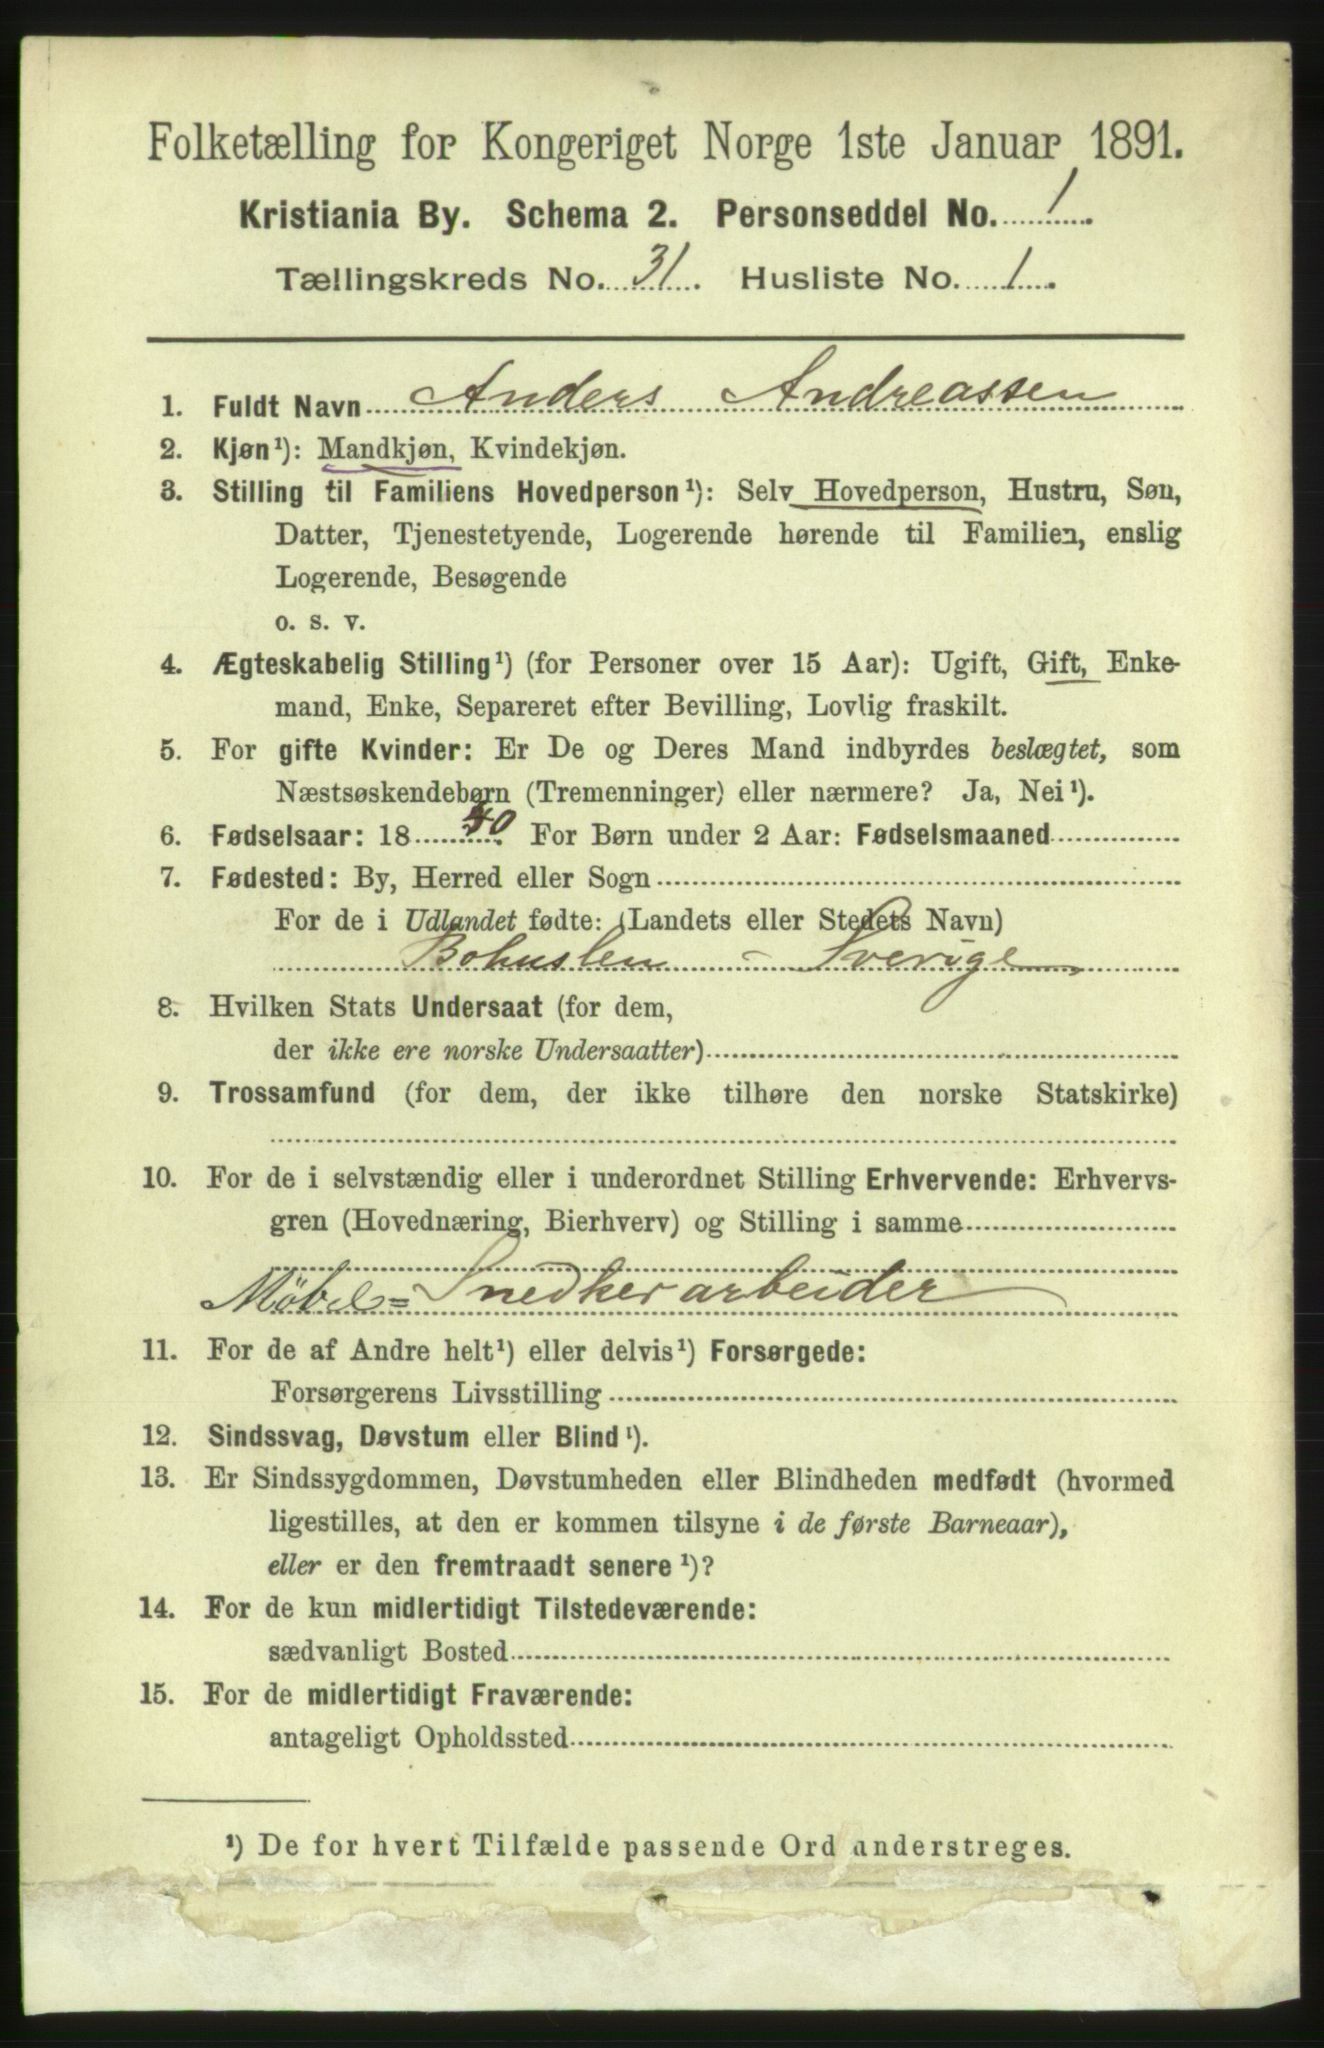 Folketælling for Kongeriget Norge 1ste Januar 1891.
Kristiania By. Schema 2. Personseddel No. 1.
Tællingskreds No. 31. Husliste No. 1.
1. Fuldt Navn Anders Andreassen
2. Kjøn¹): Mandkjøn, Kvindekjøn.
3. Stilling til Familiens Hovedperson¹): Selv Hovedperson, Hustru, Søn,
Datter, Tjenestetyende, Logerende hørende til Familien, enslig
Logerende, Besøgende
o. s. v.
4. Ægteskabelig Stilling¹) (for Personer over 15 Aar): Ugift, Gift, Enke-
mand, Enke, Separeret efter Bevilling, Lovlig fraskilt.
5. For gifte Kvinder: Er De og Deres Mand indbyrdes beslægtet, som
Næstsøskendebørn (Tremenninger) eller nærmere? Ja, Nei¹).
6. Fødselsaar: 1840. For Børn under 2 Aar: Fødselsmaaned
7. Fødested: By, Herred eller Sogn
For de i Udlandet fødte: (Landets eller Stedets Navn)
Bohuslen - Sverige
8. Hvilken Stats Undersaat (for dem,
der ikke ere norske Undersaatter)
9. Trossamfund (for dem, der ikke tilhøre den norske Statskirke)
10. For de i selvstændig eller i underordnet Stilling Erhvervende: Erhvervs-
gren (Hovednæring, Bierhverv) og Stilling i samme
Møbel=Snedkerarbeider
11. For de af Andre helt¹) eller delvis¹) Forsørgede:
Forsørgerens Livsstilling
12. Sindssvag, Døvstum eller Blind¹).
13. Er Sindssygdommen, Døvstumheden eller Blindheden medfødt (hvormed
ligestilles, at den er kommen tilsyne i de første Barneaar),
eller er den fremtraadt senere¹)?
14. For de kun midlertidigt Tilstedeværende:
sædvanligt Bosted
15. For de midlertidigt Fraværende:
antageligt Opholdssted
¹) De for hvert Tilfælde passende Ord understreges.